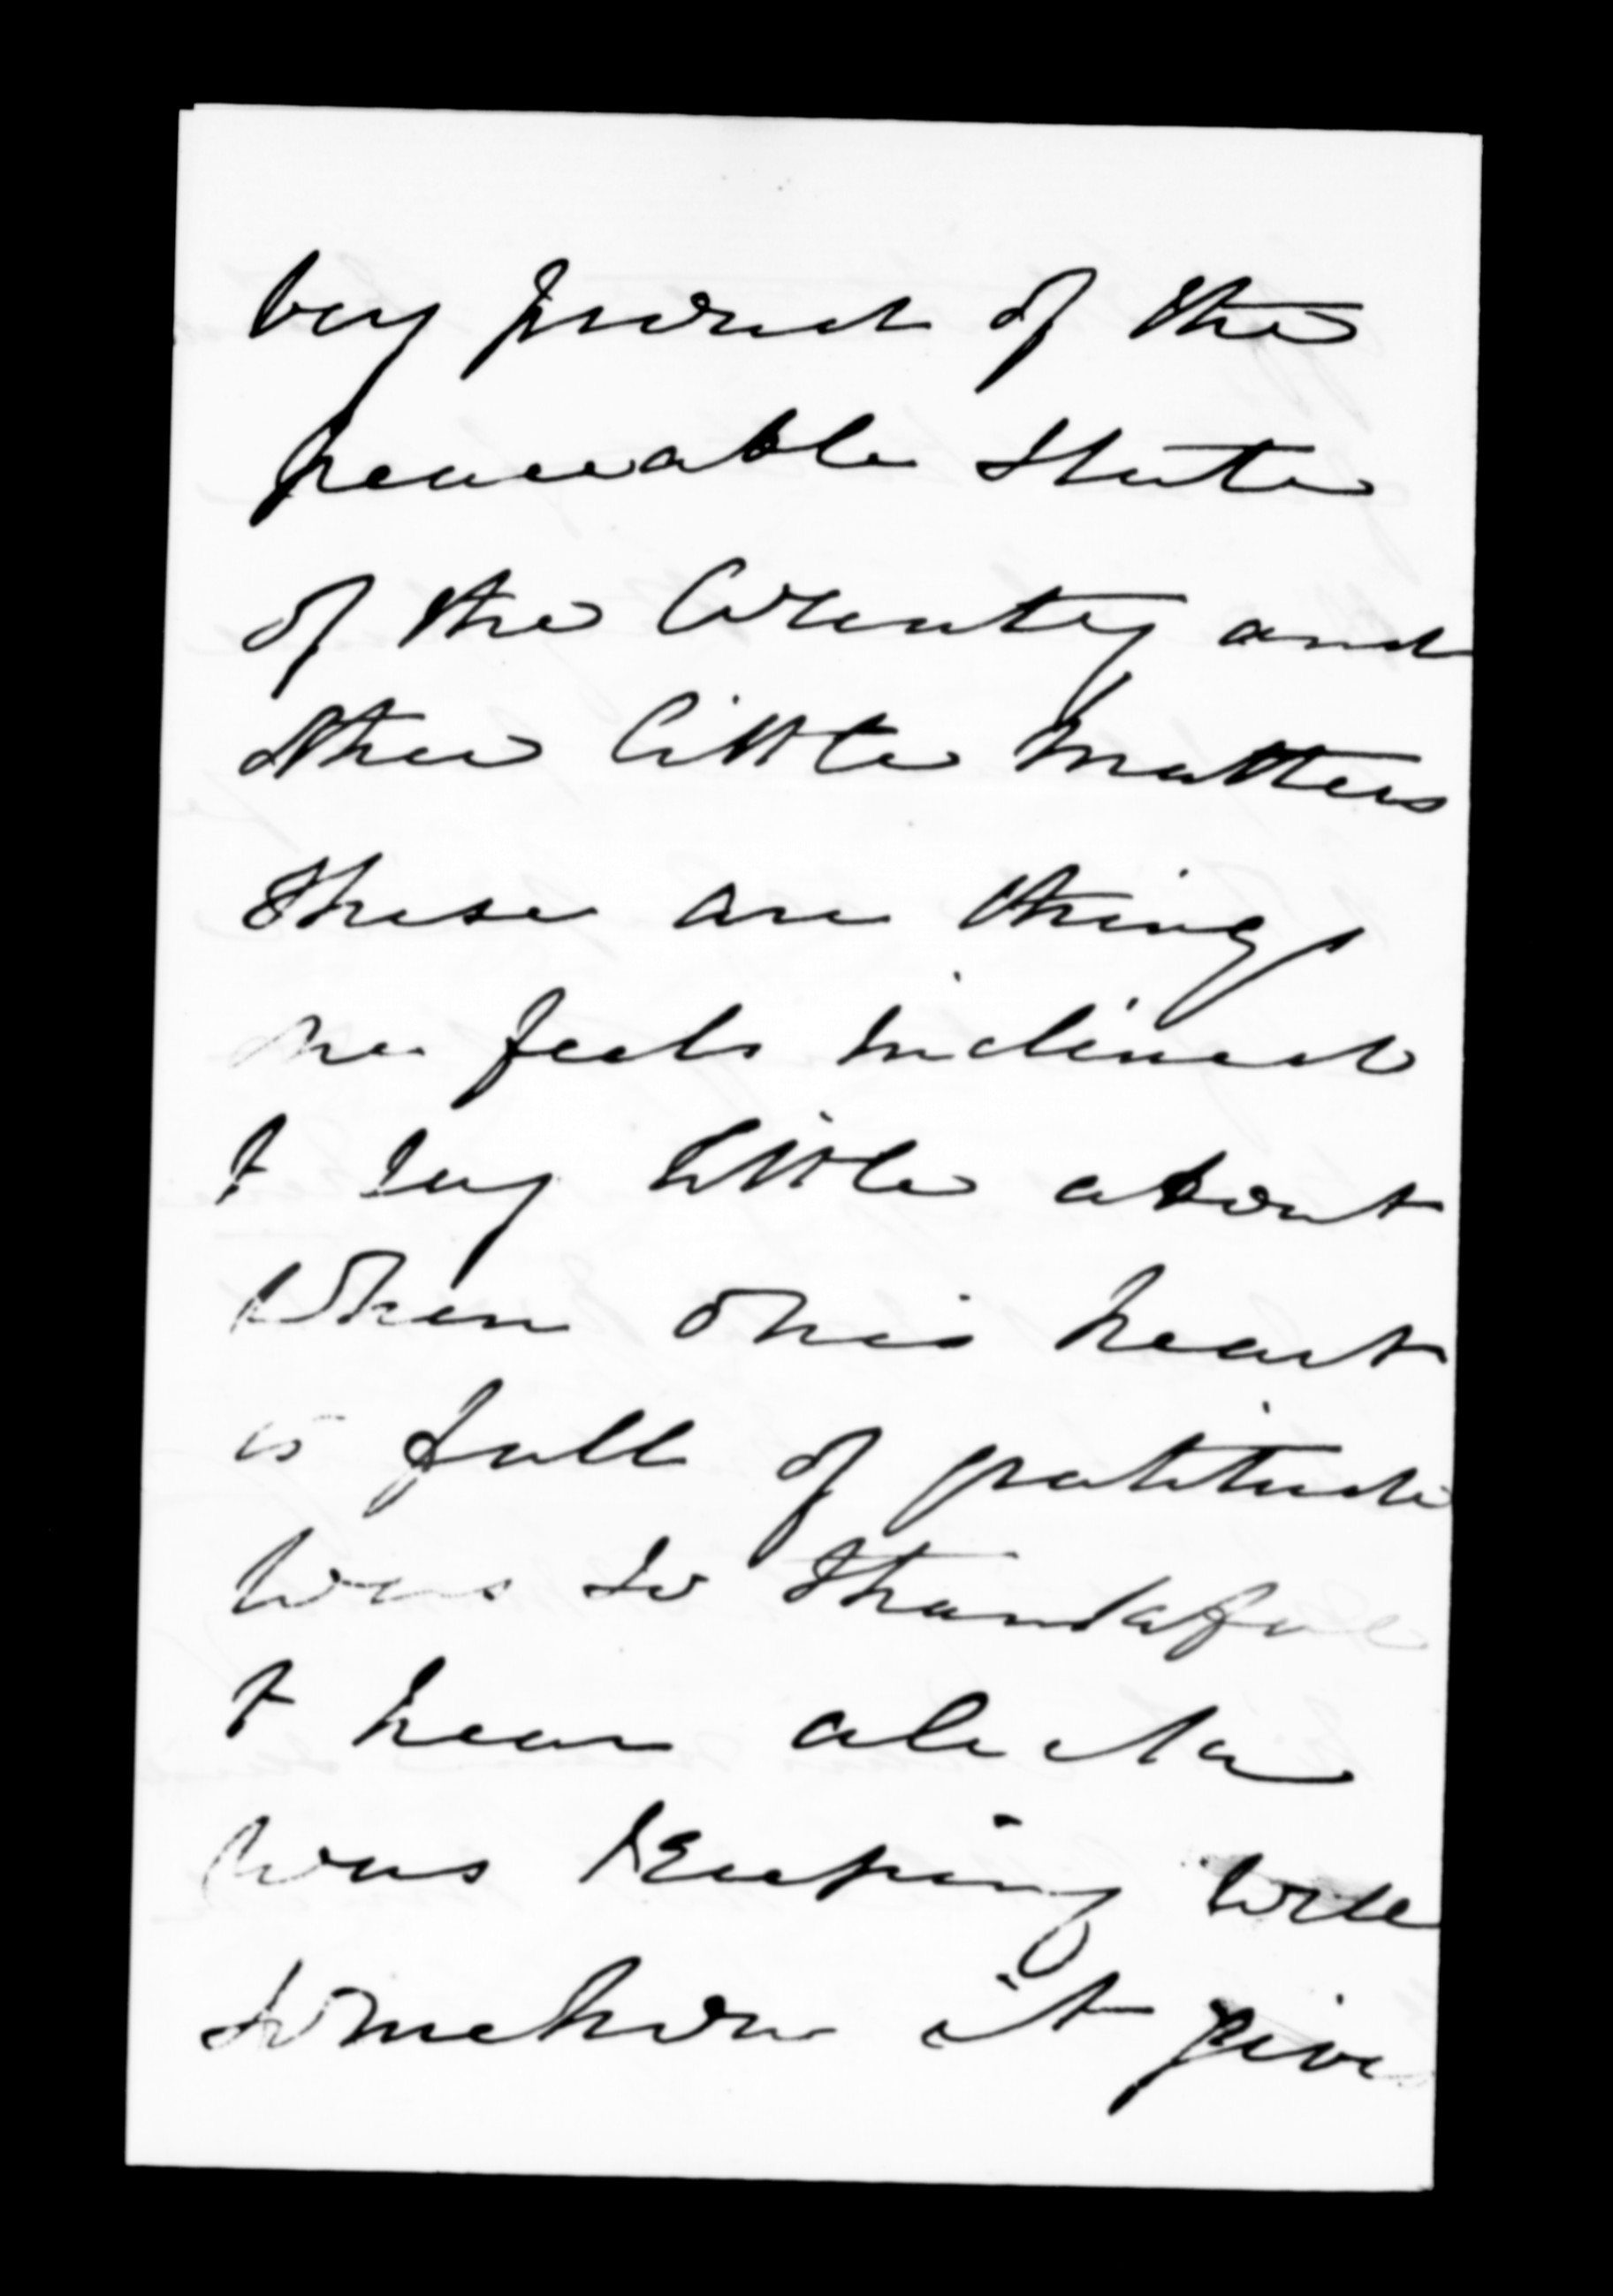 very proud of the
peaceable state
of the Country and
other little matters
these are things
one feels inclined
to say little about
When one's heart
is full of gratitude
was so thankful
to hear
was keeping well
somehow it gives